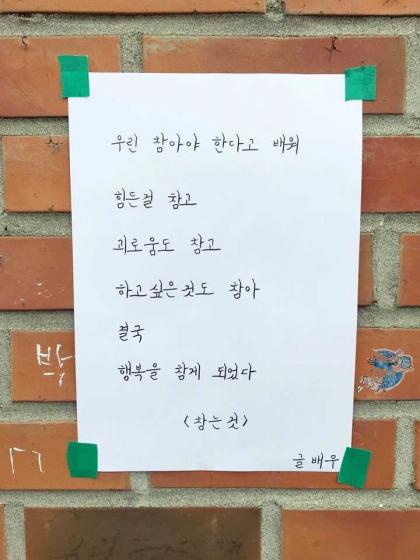 우린 참아야 한다고 배워
힘든걸 참고
괴로움도 참고
하고싶은것도 참아
결국
행복을 참게 되었다
<참는것>
글배우
박